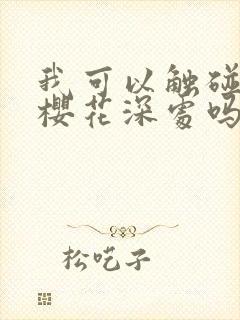 我可以触碰
樱花深处吗
松吃子